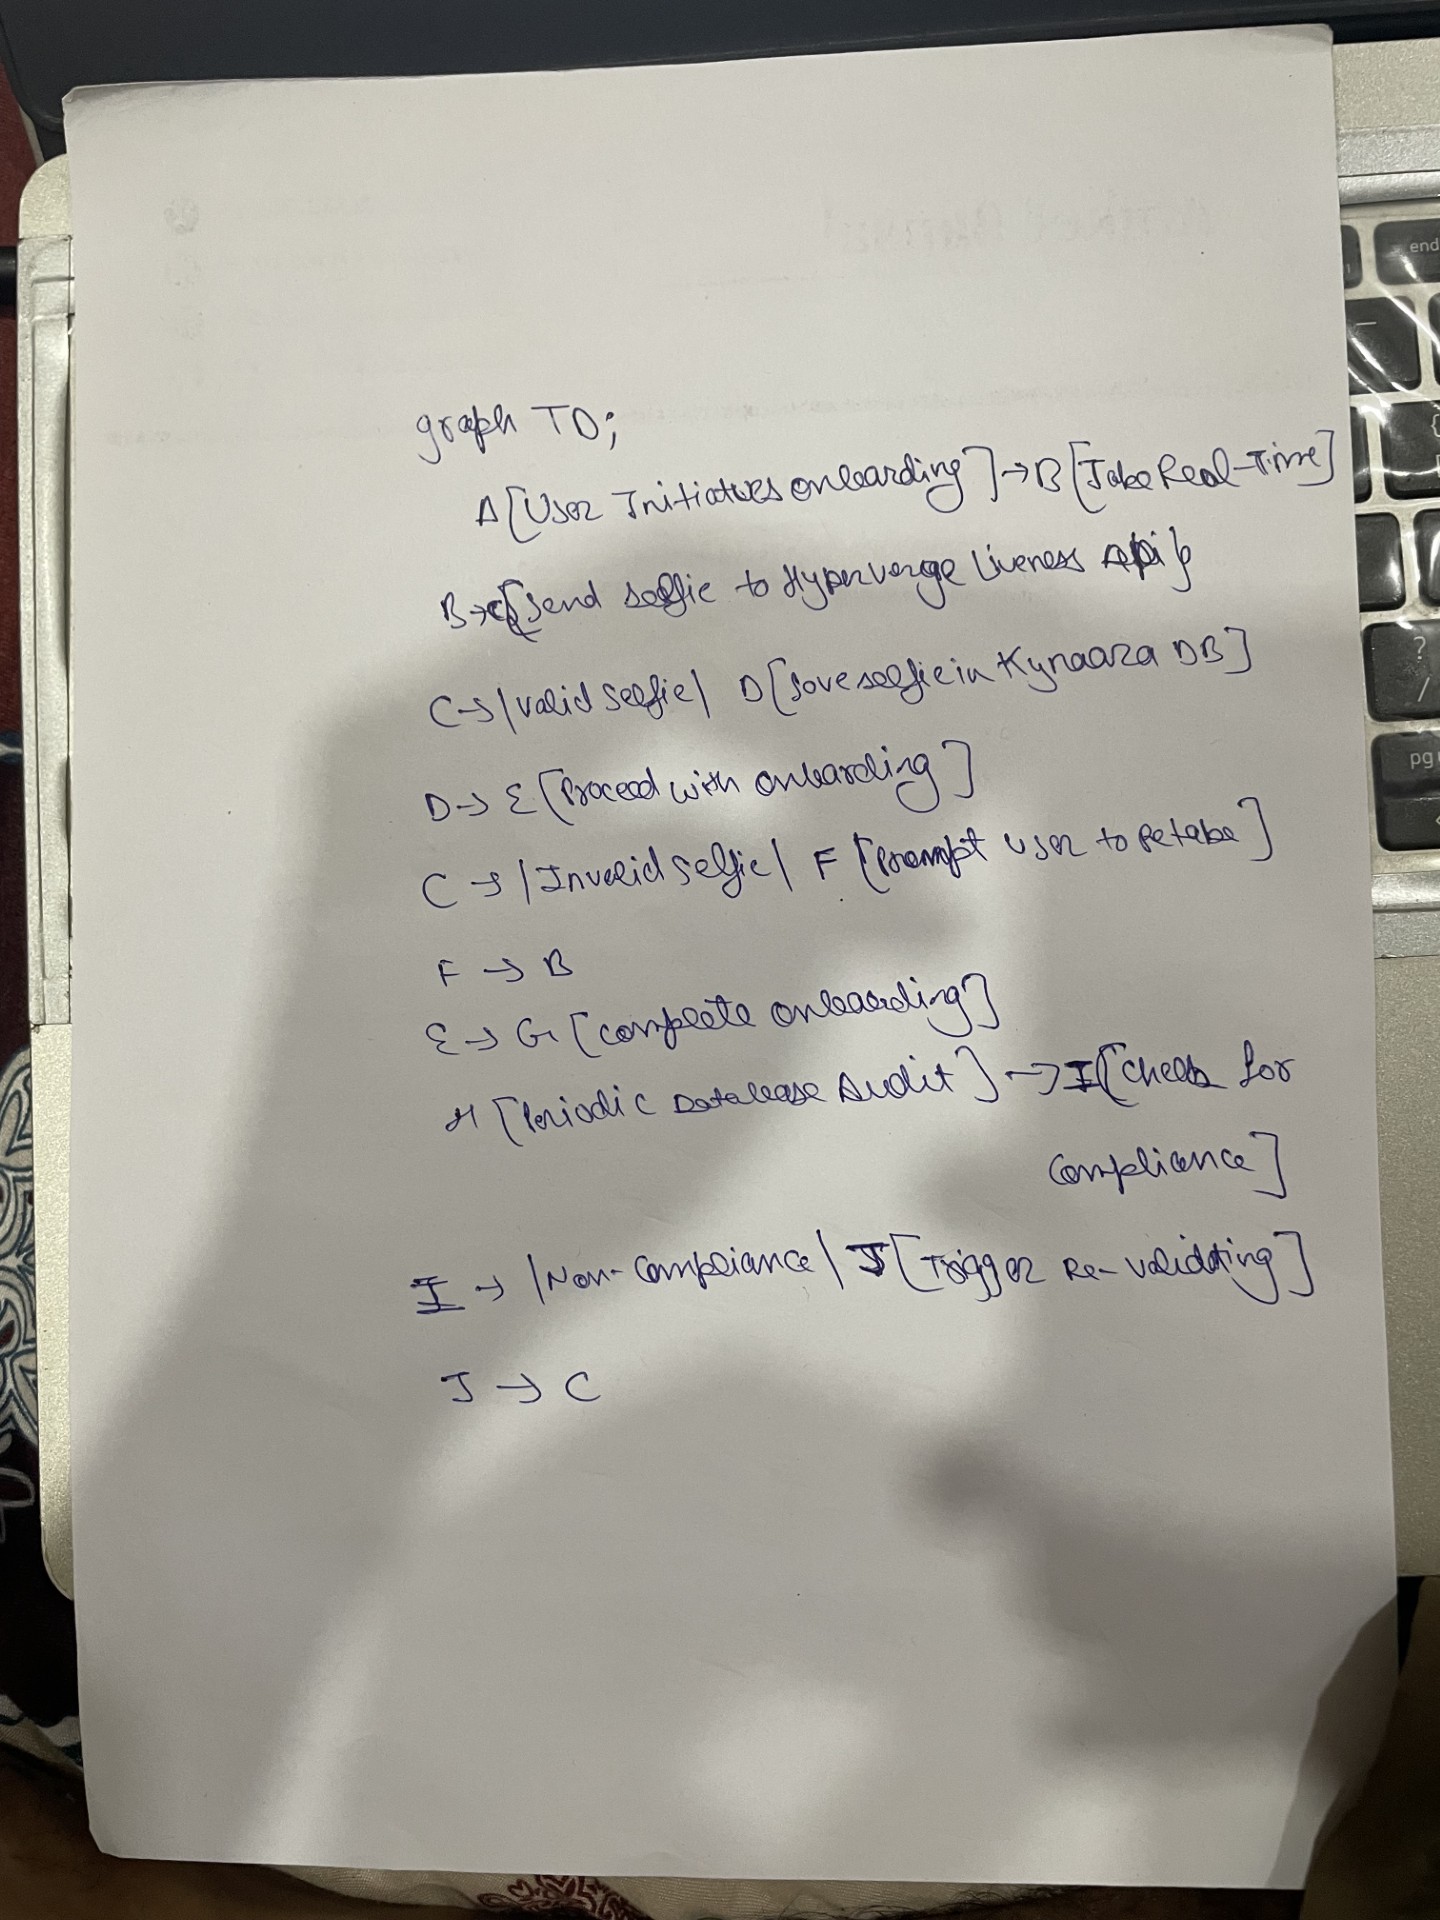 graph TD;
A[User Initiates onboarding] → B[Take Real-Time]
B → C{Send selfie to Hyperverge Liveness Api}
C → |Valid Selfie| D[Save selfie in Kynaara DB]
D → E[Proceed with onboarding]
C → |Invalid Selfie| F[Prompt User to Retake]
F → B
E → G[complete onboarding]
H[Periodic Database Audit] → I[Check for
Compliance]
I → |Non-Compliance| J[Trigger Re-validating]
J → C
end
{
?
/
pg